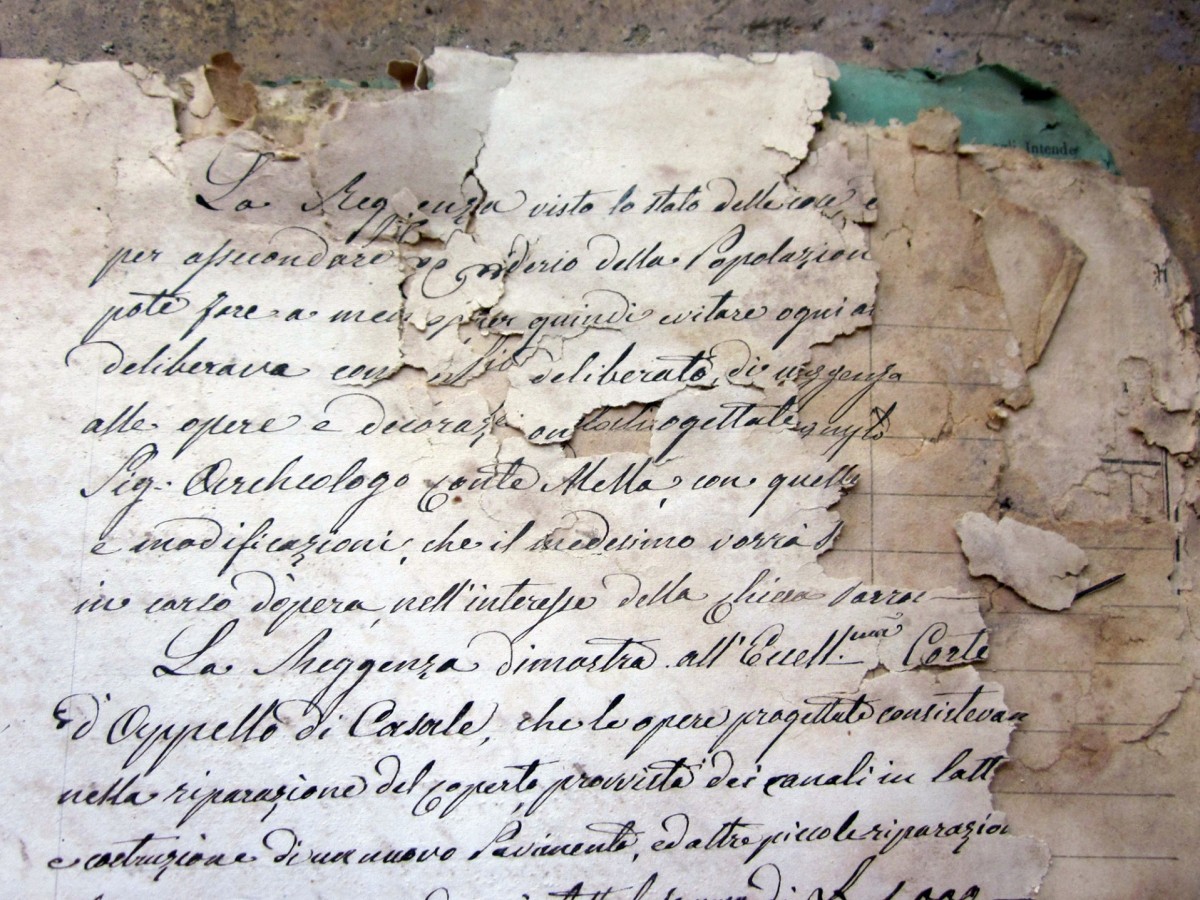 gli Intende
La Reggenza visto lo stato delle cose e
per assecondare desiderio della Popolazion
potè fare a meno quindi evitare ogni
deliberava con deliberato di urgenza
alle opere e decorazioni progettate
Sig. Archeologo Conte Mella, con quelle
e modificazioni, che il medesimo vorrà
in corso d'opera, nell'interesse della Chiesa Parroc
La Reggenza dimostra all'Eccell.ma Corte
d'Appello di Casale, che le opere progettate consistevan
nella riparazione del coperto, provvista dei canali in latt
e costruzione di un nuovo Pavimento, ed altre piccole riparazion
di